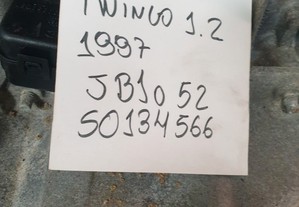 TWINGO 1.2
1997
JB1052
S0134566